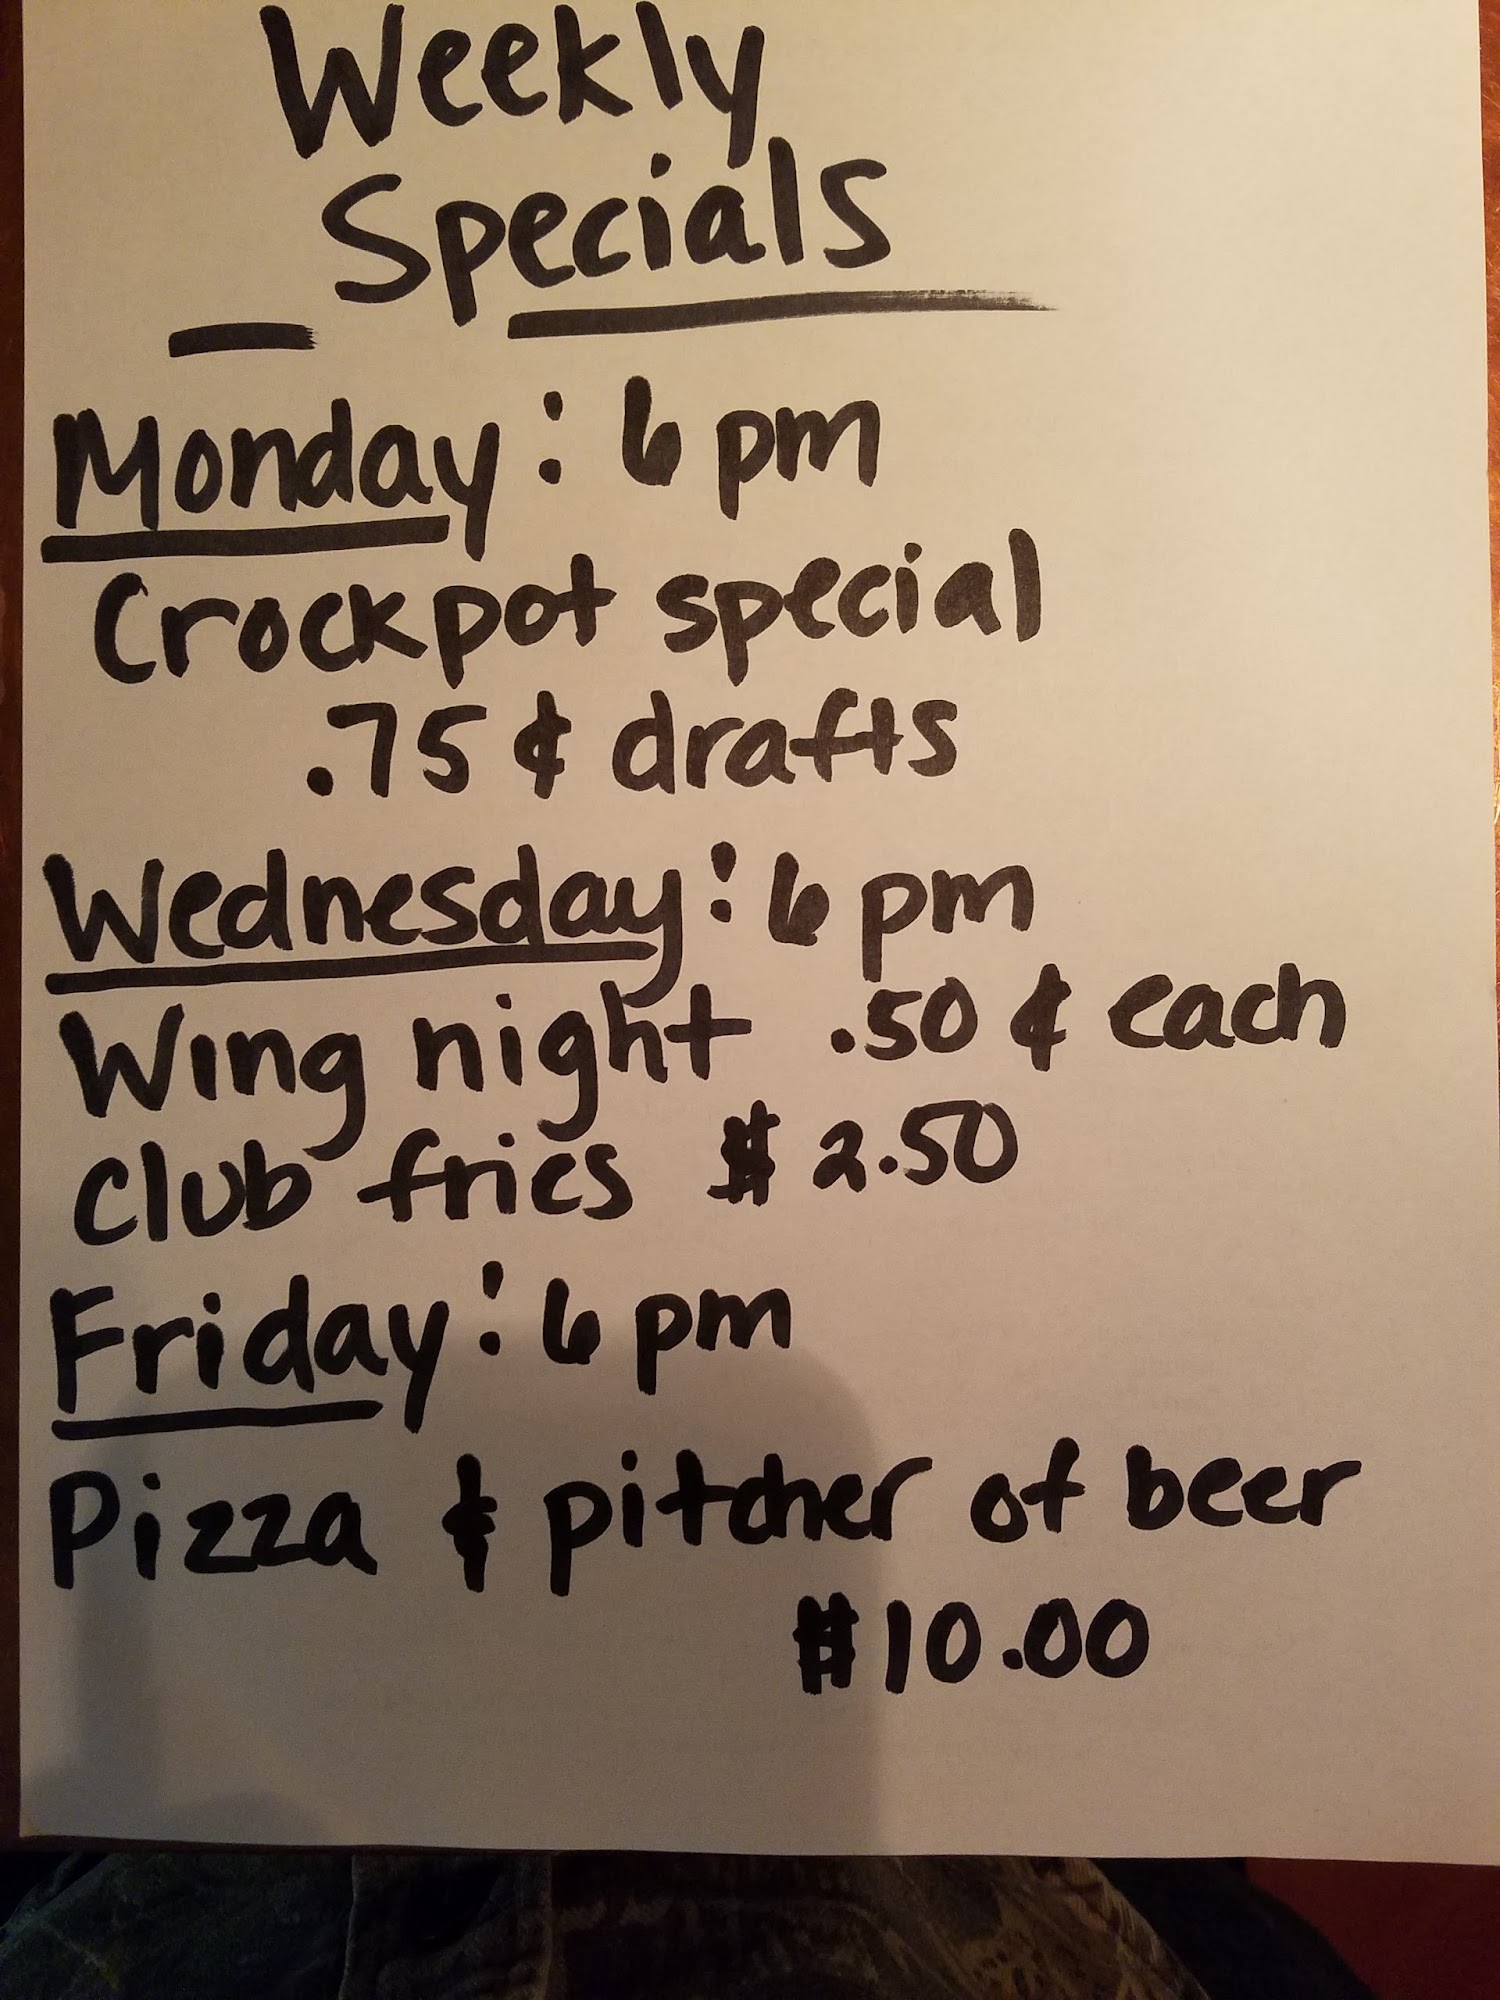 Weekly
Specials
Monday: 6pm
Crockpot special
.75¢ drafts
Wednesday: 6pm
Wing night .50¢ each
Club fries $2.50
Friday: 6pm
Pizza & pitcher of beer
$10.00